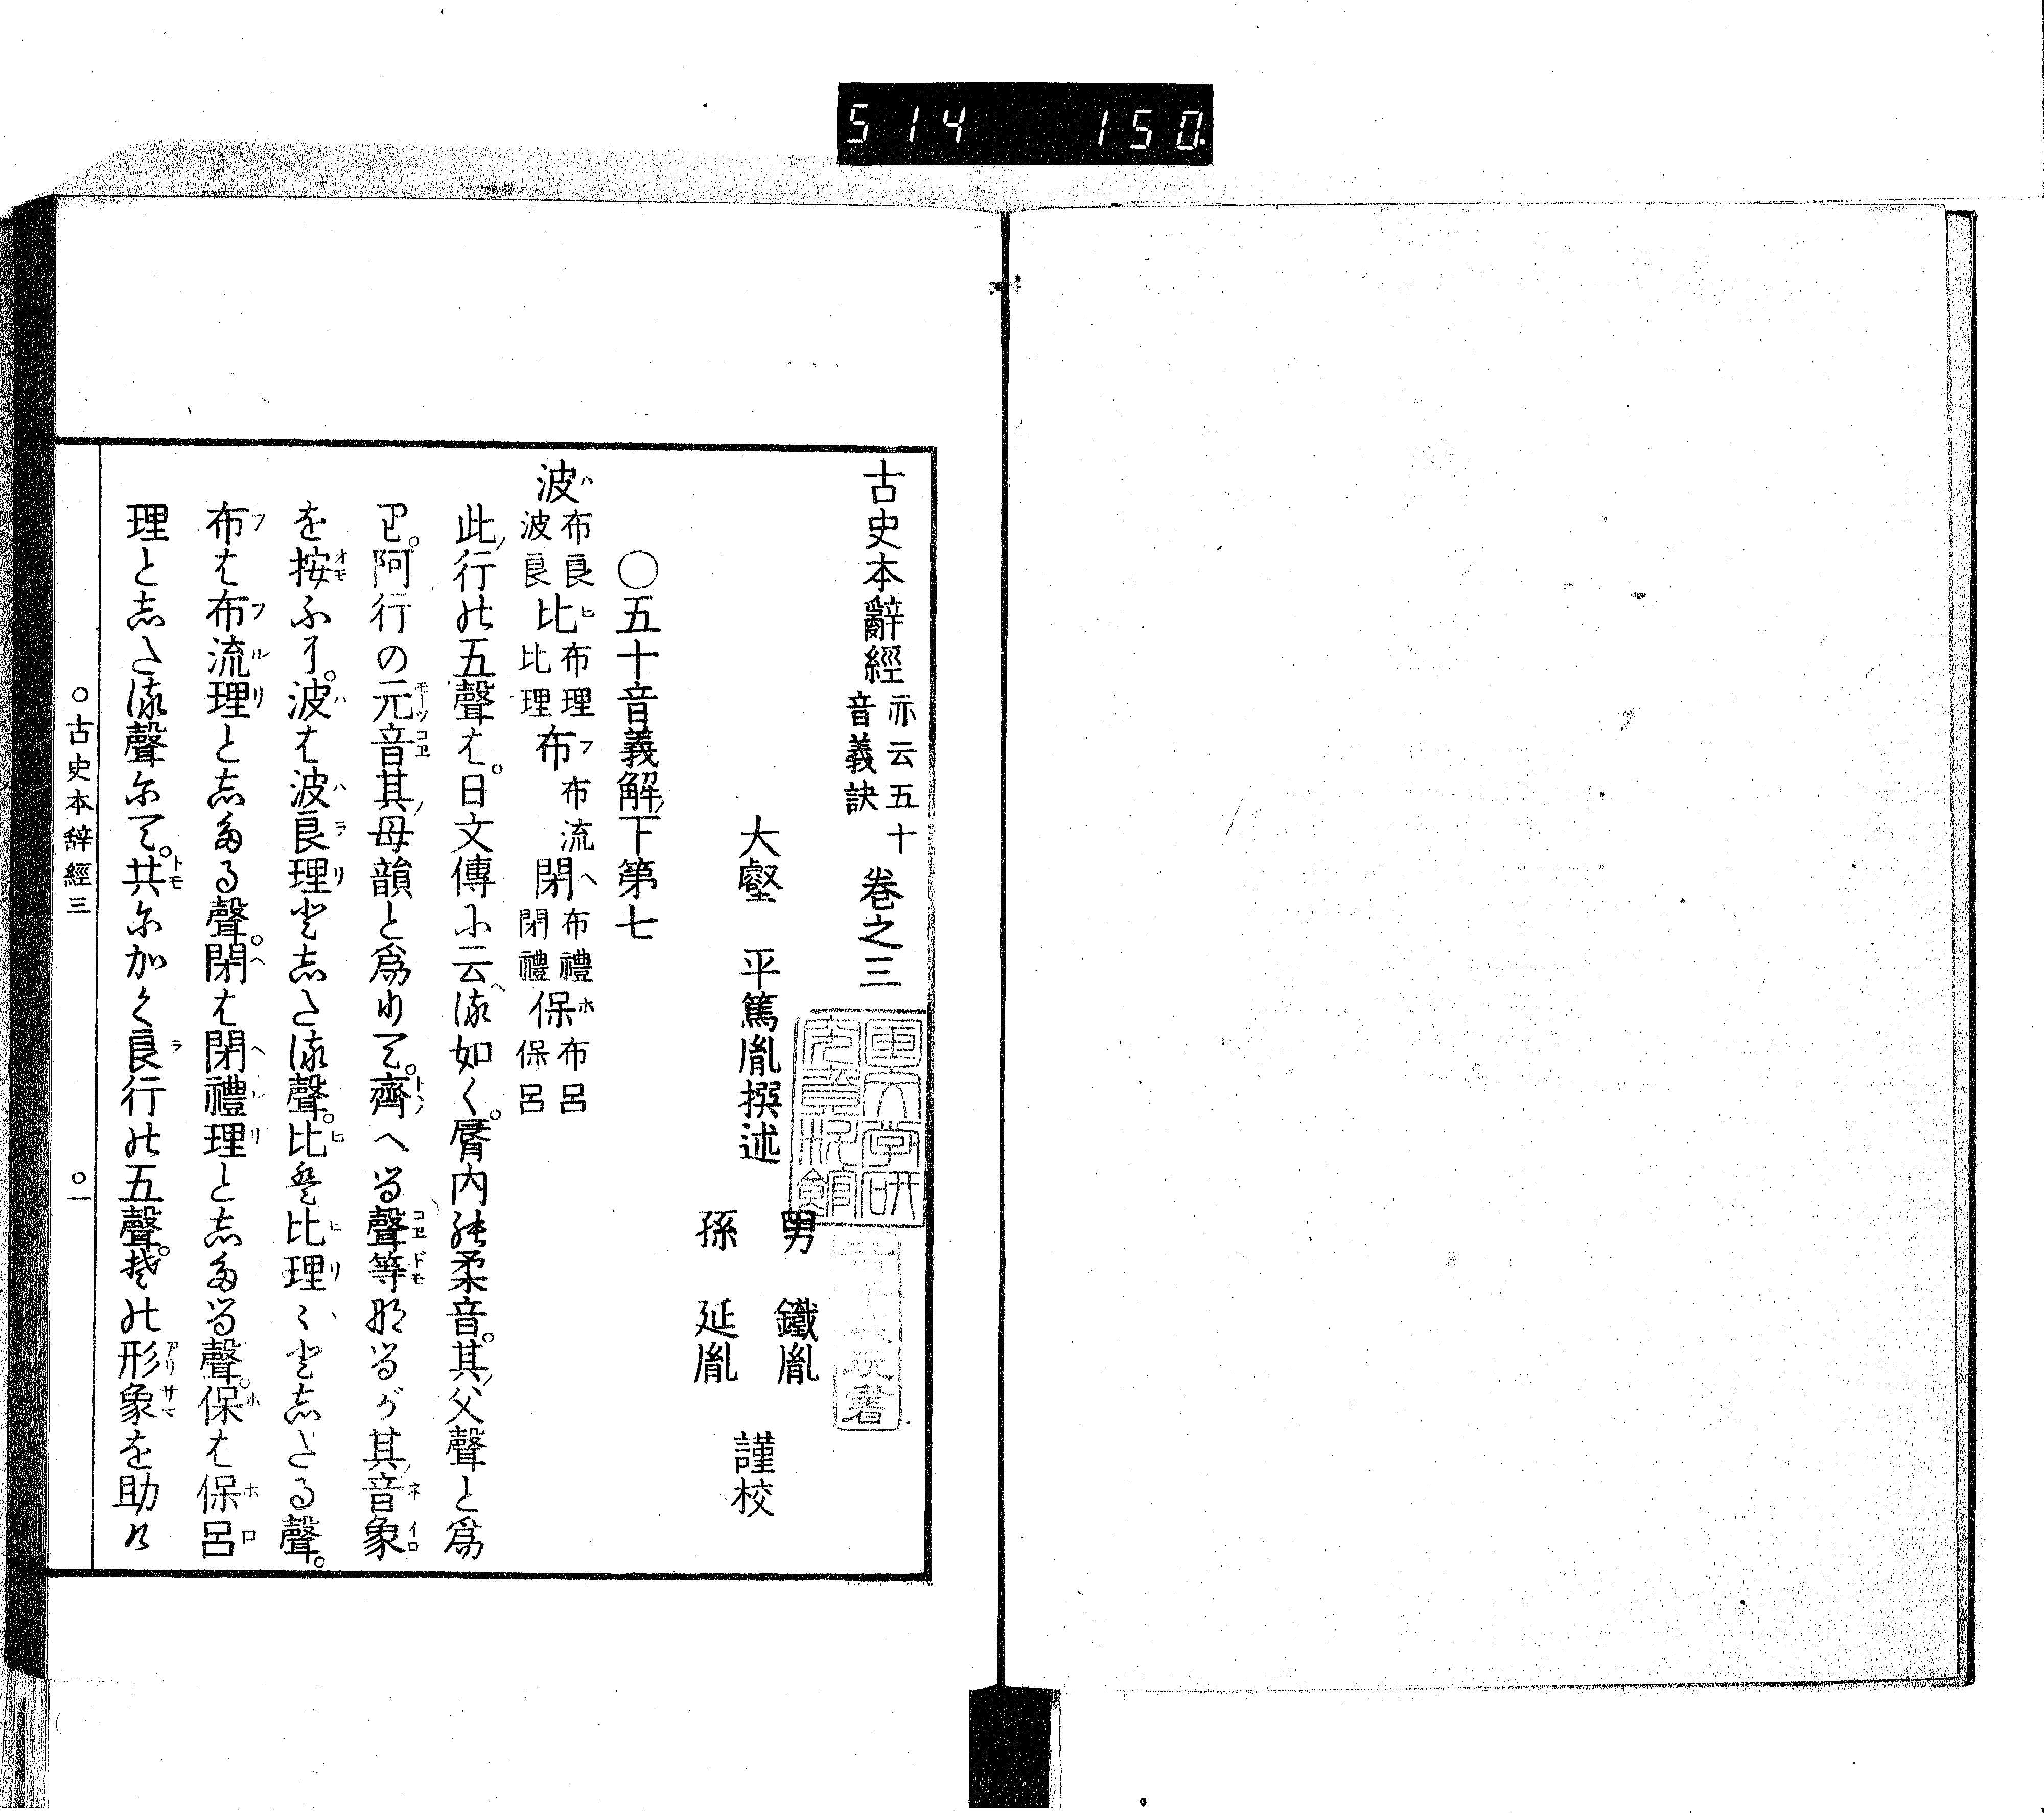 514 150
古史本辭經 亦云五十音義訣 卷之三
大壑 平篤胤撰述
男 鐵胤
孫 延胤
謹校
○五十音義解ノ下第七
波ハ 布良 波良 比ヒ 布理 比理 布フ 布流 閇ヘ 布禮 閇禮 保ホ 布呂 保呂
此ノ行の五聲は。日文傳に云へる如く。脣内の柔音。其ノ父聲と爲
り。阿行の元音其ノ母韻と爲りて。齊へる聲等なるが其ノ音象
を按ふに。波は波良理としたる聲。比は比理々としたる聲。
布は布流理としたる聲。閇は閇禮理としたる聲。保は保呂
理としたる聲にて。共にかく良行の五聲。その形象を助け
○古史本辞經三 ○一